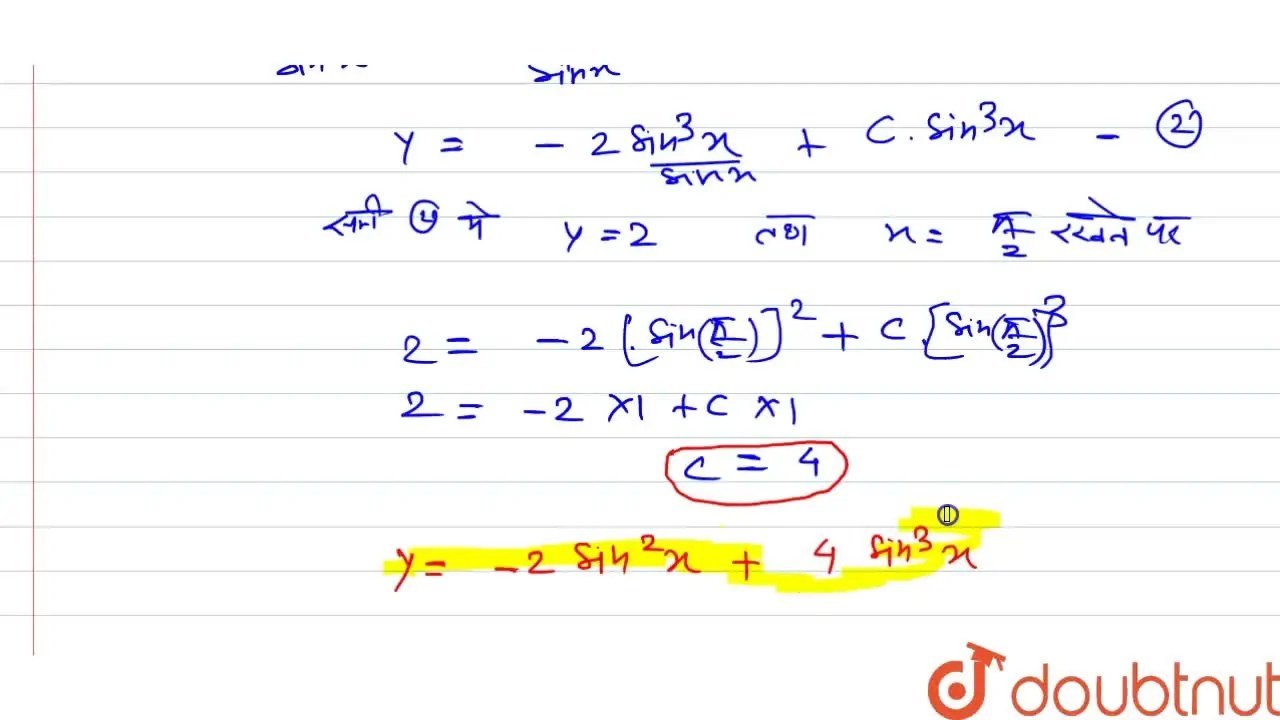 sinx
y = - 2 sin³x/sinx + C. sin³x - ②
समी ② में y = 2 तथा x = π/2 रखने पर
2 = - 2 [sin(π/2)]² + C [sin(π/2)]³
2 = -2 x1 + C x1
C = 4
y = - 2 sin²x + 4 sin³x
doubtnut